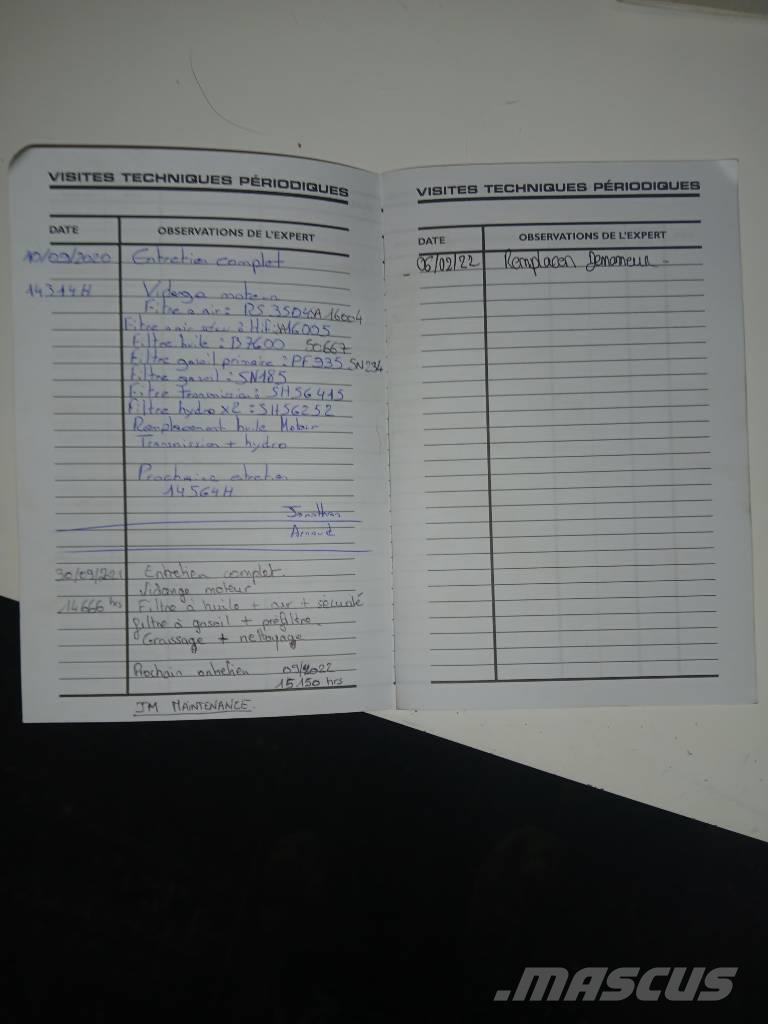 VISITES TECHNIQUES PÉRIODIQUES
DATE OBSERVATIONS DE L'EXPERT
10/09/2020 Entretien complet
14314H Vidange moteur
Filtre a air : RS3504 SA16004
Filtre a air : Hif: SA16005
Filtre huile : B7600 50667
Filtre gasoil primaire : PF935 SN234
Filtre gasoil : SN185
Filtre Transmission : SH56415
Filtre hydro x2 : SH56252
Remplacement huile Moteur
Transmission + hydro
Prochaine entretien
14564H
Jonathan
Arnaud
30/09/2021 Entretien complet.
Vidange moteur
14666 hrs Filtre à huile + air + sécurité
filtre à gasoil + préfiltre
Graissage + nettoyage
Prochain entretien 09/2022
15150 hrs
JM MAINTENANCE.
VISITES TECHNIQUES PÉRIODIQUES
DATE OBSERVATIONS DE L'EXPERT
06/02/22 Remplacer Demarreur -
.MASCUS